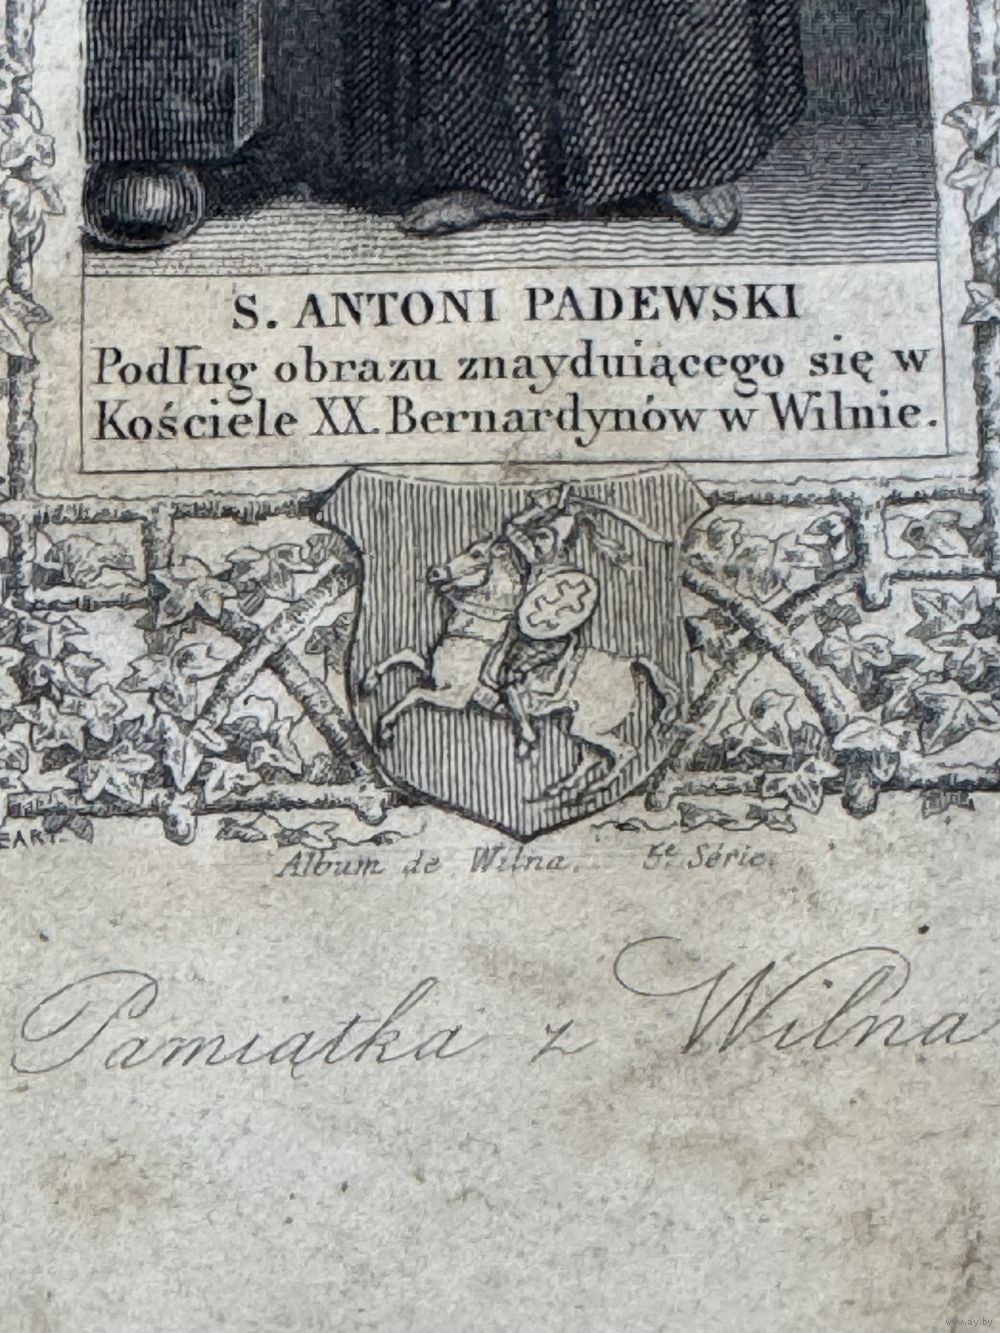 S. ANTONI PADEWSKI
Podług obrazu znayduiącego się w
Kościele XX. Bernardynów w Wilnie.
EART.
Album de Wilna. 5e Série.
Pamiątka z Wilna
www.ay.by